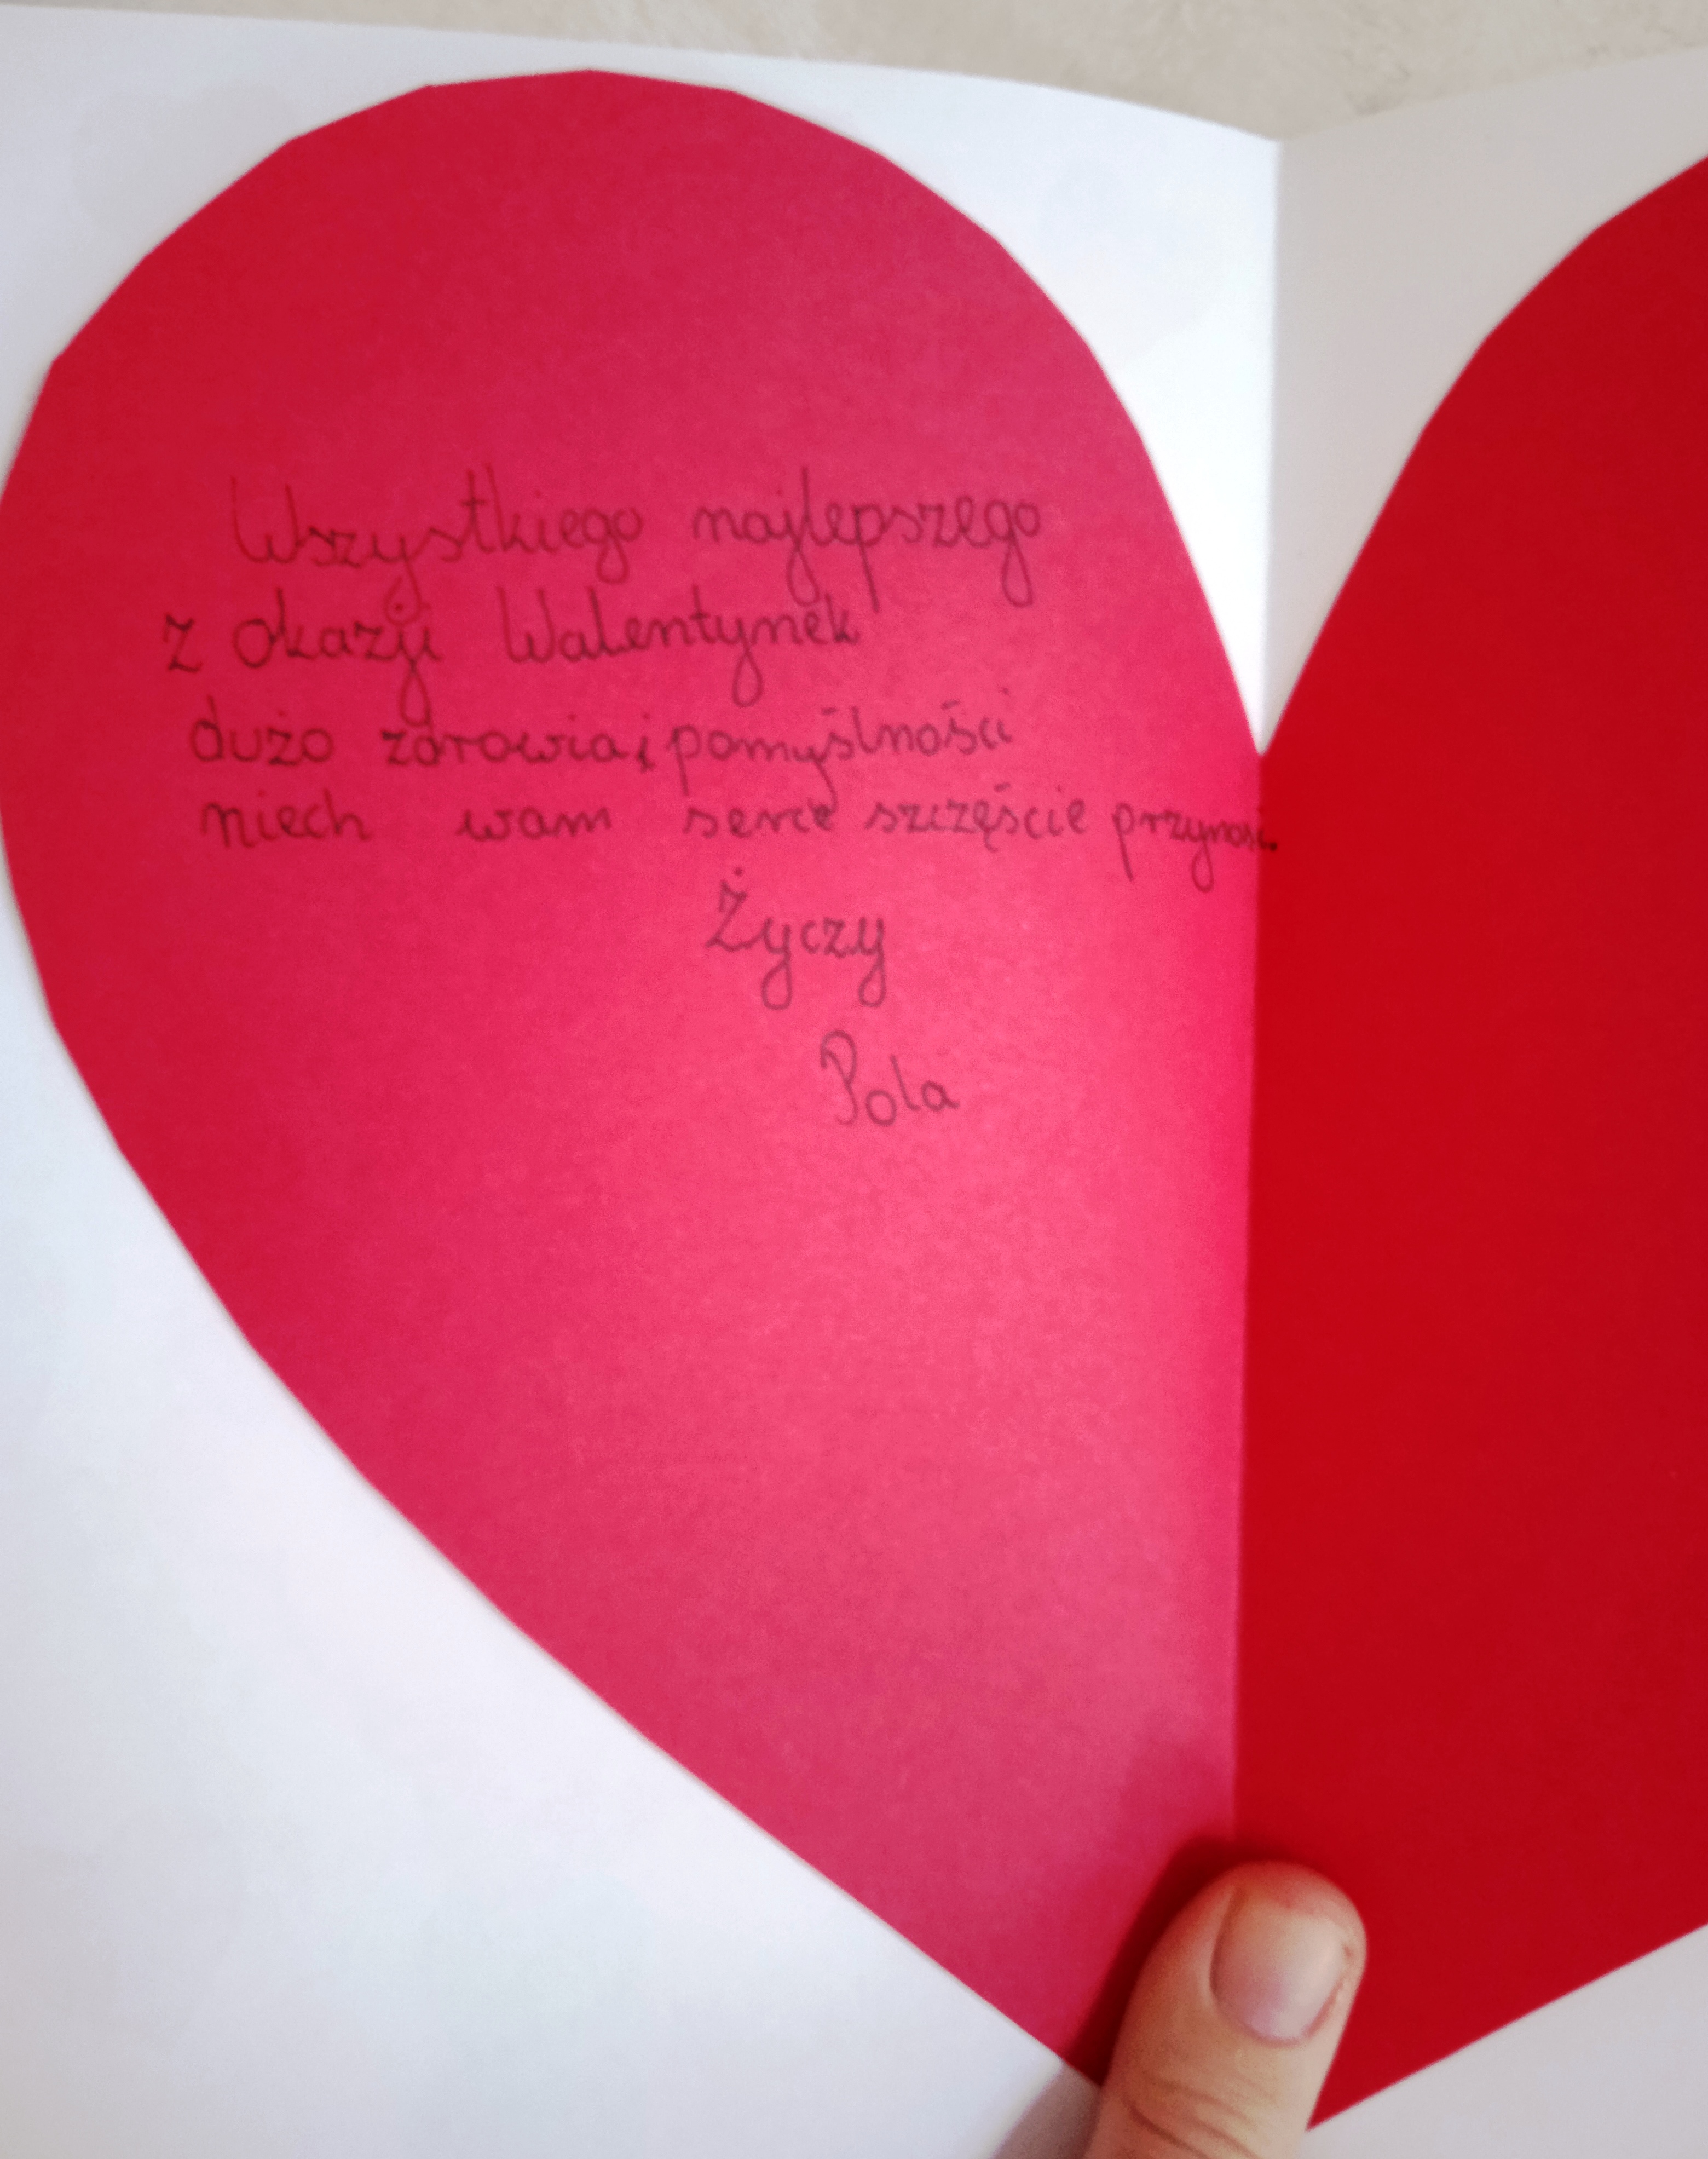 Wszystkiego najlepszego
z okazji Walentynek
dużo zdrowia i pomyślności
niech wam serce szczęście przynosi.
Życzy
Pola